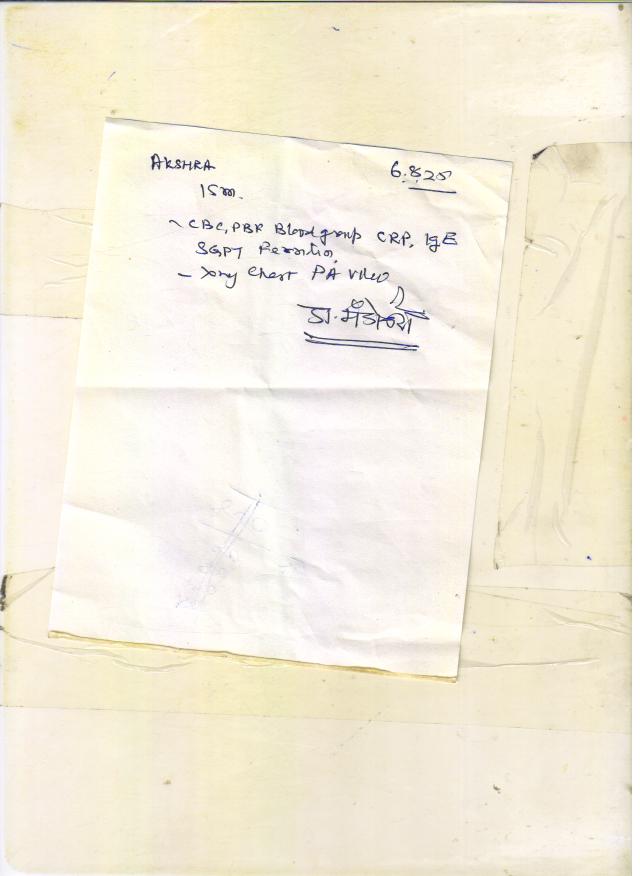 AKSHRA
6.8.25
15m.
~ CBC, PBR Bloodgroup CRP, IgE
SGPT Ferritin,
- Xray Chest PA view
डा.